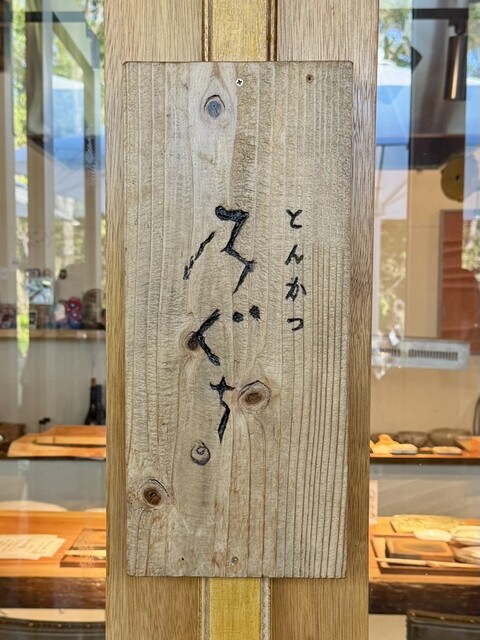 とんかつ
ふぐち